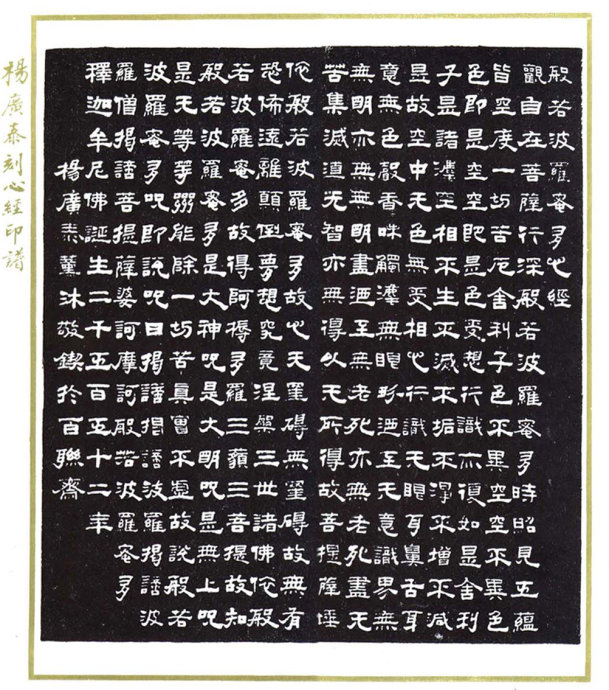 般若波羅蜜多心經
觀自在菩薩行深般若波羅蜜多時照見五蘊
皆空度一切苦厄舍利子色不異空空不異色
色即是空空即是色受想行識亦復如是舍利
子是諸法空相不生不滅不垢不淨不增不減
是故空中无色無受想行識无眼耳鼻舌身
意無色聲香味觸法無眼界迺至无意識界無
無明亦無無明盡迺至無老死亦無老死盡无
苦集滅道无智亦無得以无所得故菩提薩埵
依般若波羅蜜多故心无罣礙無罣礙故無有
恐怖遠離顛倒夢想究竟涅槃三世諸佛依般
若波羅蜜多故得阿耨多羅三藐三菩提故知
般若波羅蜜多是大神咒是大明咒是無上咒
是无等等咒能除一切苦真實不虛故說般若
波羅蜜多咒即說咒曰揭諦揭諦波羅揭諦波
羅僧揭諦菩提薩婆訶摩訶般若波羅蜜多
釋迦牟尼佛誕生二千五百五十二年
楊廣泰薰沐敬鍥於百聯齋
楊廣泰刻心經印譜